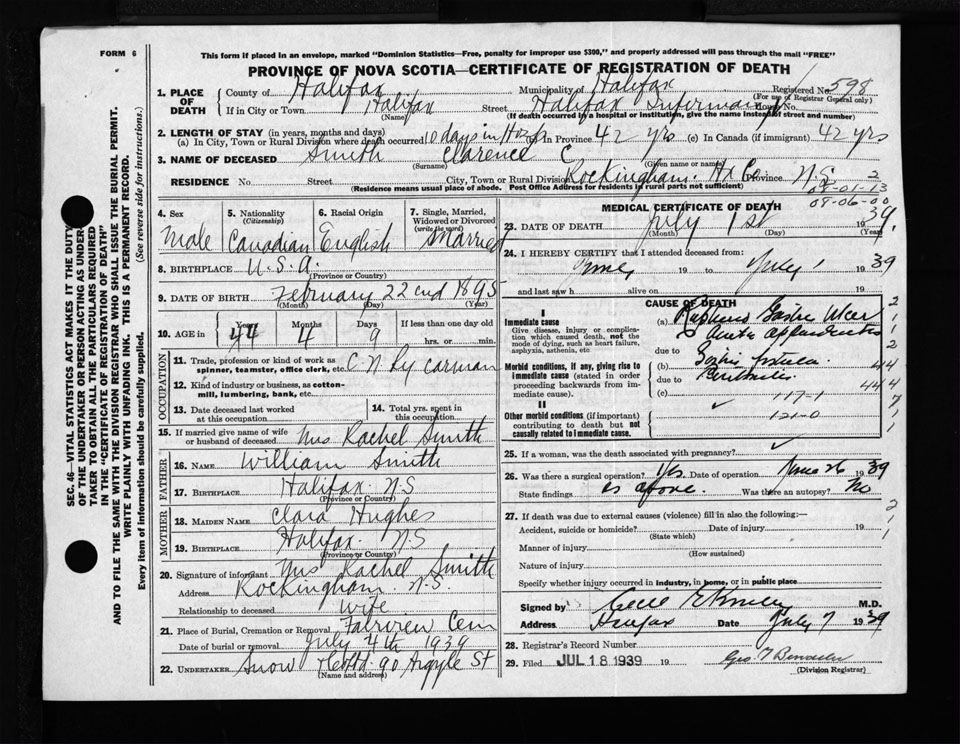 FORM 6
This form if placed in an envelope, marked "Dominion Statistics—Free, penalty for improper use $300," and properly addressed will pass through the mail "FREE"
PROVINCE OF NOVA SCOTIA—CERTIFICATE OF REGISTRATION OF DEATH
SEC. 46—VITAL STATISTICS ACT MAKES IT THE DUTY
OF THE UNDERTAKER OR PERSON ACTING AS UNDER-
TAKER TO OBTAIN ALL THE PARTICULARS REQUIRED
IN THE "CERTIFICATE OF REGISTRATION OF DEATH"
AND TO FILE THE SAME WITH THE DIVISION REGISTRAR WHO SHALL ISSUE THE BURIAL PERMIT.
WRITE PLAINLY WITH UNFADING INK. THIS IS A PERMANENT RECORD.
Every item of information should be carefully supplied. (See reverse side for instructions.)
1. PLACE OF DEATH County of Halifax Municipality of Halifax Registered No. 598
(For use of Registrar General only)
If in City or Town Halifax Street Halifax Infirmary House No.
(Name) (If death occurred in a hospital or institution, give the name instead of street and number)
2. LENGTH OF STAY (in years, months and days)
(a) In City, Town or Rural Division where death occurred 10 days in Hosp (b) in Province 42 yrs (c) In Canada (if immigrant) 42 yrs
3. NAME OF DECEASED Smith Clarence C.
(Surname) (Given name or names)
RESIDENCE No. Street City, Town or Rural Division Rockingham. Hx Co. Province N.S. 2
(Residence means usual place of abode. Post Office Address for residents in rural parts not sufficient)
09-01-13
09-06-00
4. Sex Male
5. Nationality (Citizenship) Canadian
6. Racial Origin English
7. Single, Married, Widowed or Divorced (write the word) Married
8. BIRTHPLACE U.S.A.
(Province or Country)
9. DATE OF BIRTH February 22nd 1895
(Month) (Day) (Year)
10. AGE in Years 44 Months 4 Days 9 If less than one day old hrs. or min.
OCCUPATION
11. Trade, profession or kind of work as spinner, teamster, office clerk, etc. C N Ry carman
12. Kind of industry or business, as cotton-mill, lumbering, bank, etc.
13. Date deceased last worked at this occupation
14. Total yrs. spent in this occupation
15. If married give name of wife or husband of deceased Mrs Rachel Smith
FATHER
16. NAME William Smith
17. BIRTHPLACE Halifax N.S
(Province or Country)
MOTHER
18. MAIDEN NAME Clara Hughes
19. BIRTHPLACE Halifax N.S
(Province or Country)
20. Signature of informant Mrs Rachel Smith
Address Rockingham N.S.
Relationship to deceased wife
21. Place of Burial, Cremation or Removal Fairview Cem
Date of burial or removal July 4th 1939
22. UNDERTAKER Snow & Co Ltd. 90 Argyle St
(Name and address)
MEDICAL CERTIFICATE OF DEATH
23. DATE OF DEATH July 1st 1939.
(Month) (Day) (Year)
24. I HEREBY CERTIFY that I attended deceased from:
June 19 to July 1 1939
and last saw h alive on 19
CAUSE OF DEATH
I
Immediate cause
Give disease, injury or complication which caused death, not the mode of dying, such as heart failure, asphyxia, asthenia, etc
(a) Ruptured Gastric Ulcer
& acute appendicitis
due to
Morbid conditions, if any, giving rise to immediate cause (stated in order proceeding backwards from immediate cause).
(b) Gastric
due to Peritonitis.
(c) 117-1
121-0
II
Other morbid conditions (if important) contributing to death but not causally related to immediate cause.
25. If a woman, was the death associated with pregnancy?
26. Was there a surgical operation? Yes. Date of operation June 26 1939
State findings as above. Was there an autopsy? No
27. If death was due to external causes (violence) fill in also the following:
Accident, suicide or homicide? Date of injury 19
(State which)
Manner of injury
(How sustained)
Nature of injury
Specify whether injury occurred in industry, in home, or in public place
Signed by M.D.
Address Halifax Date July 7 1939
28. Registrar's Record Number
29. Filed JUL 18 1939 19
(Division Registrar)